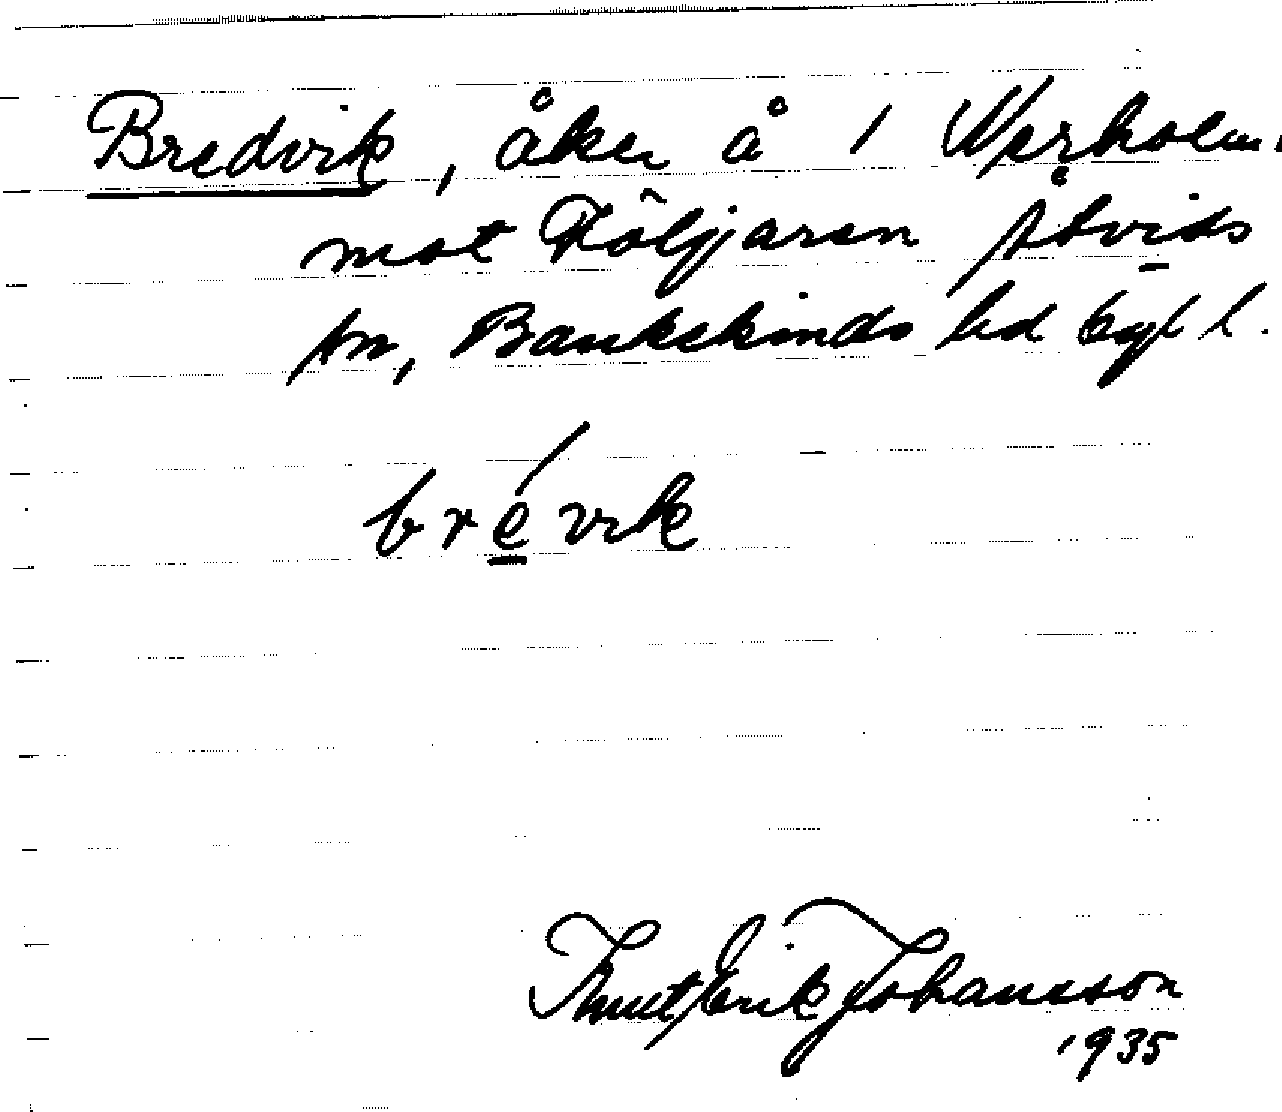 Bredvik, åker å 1 Norrholm
mot Höljaren Åtvids
sn, Bankekinds hd Ögl l.
brévik
Knut Erik Johansson
1935